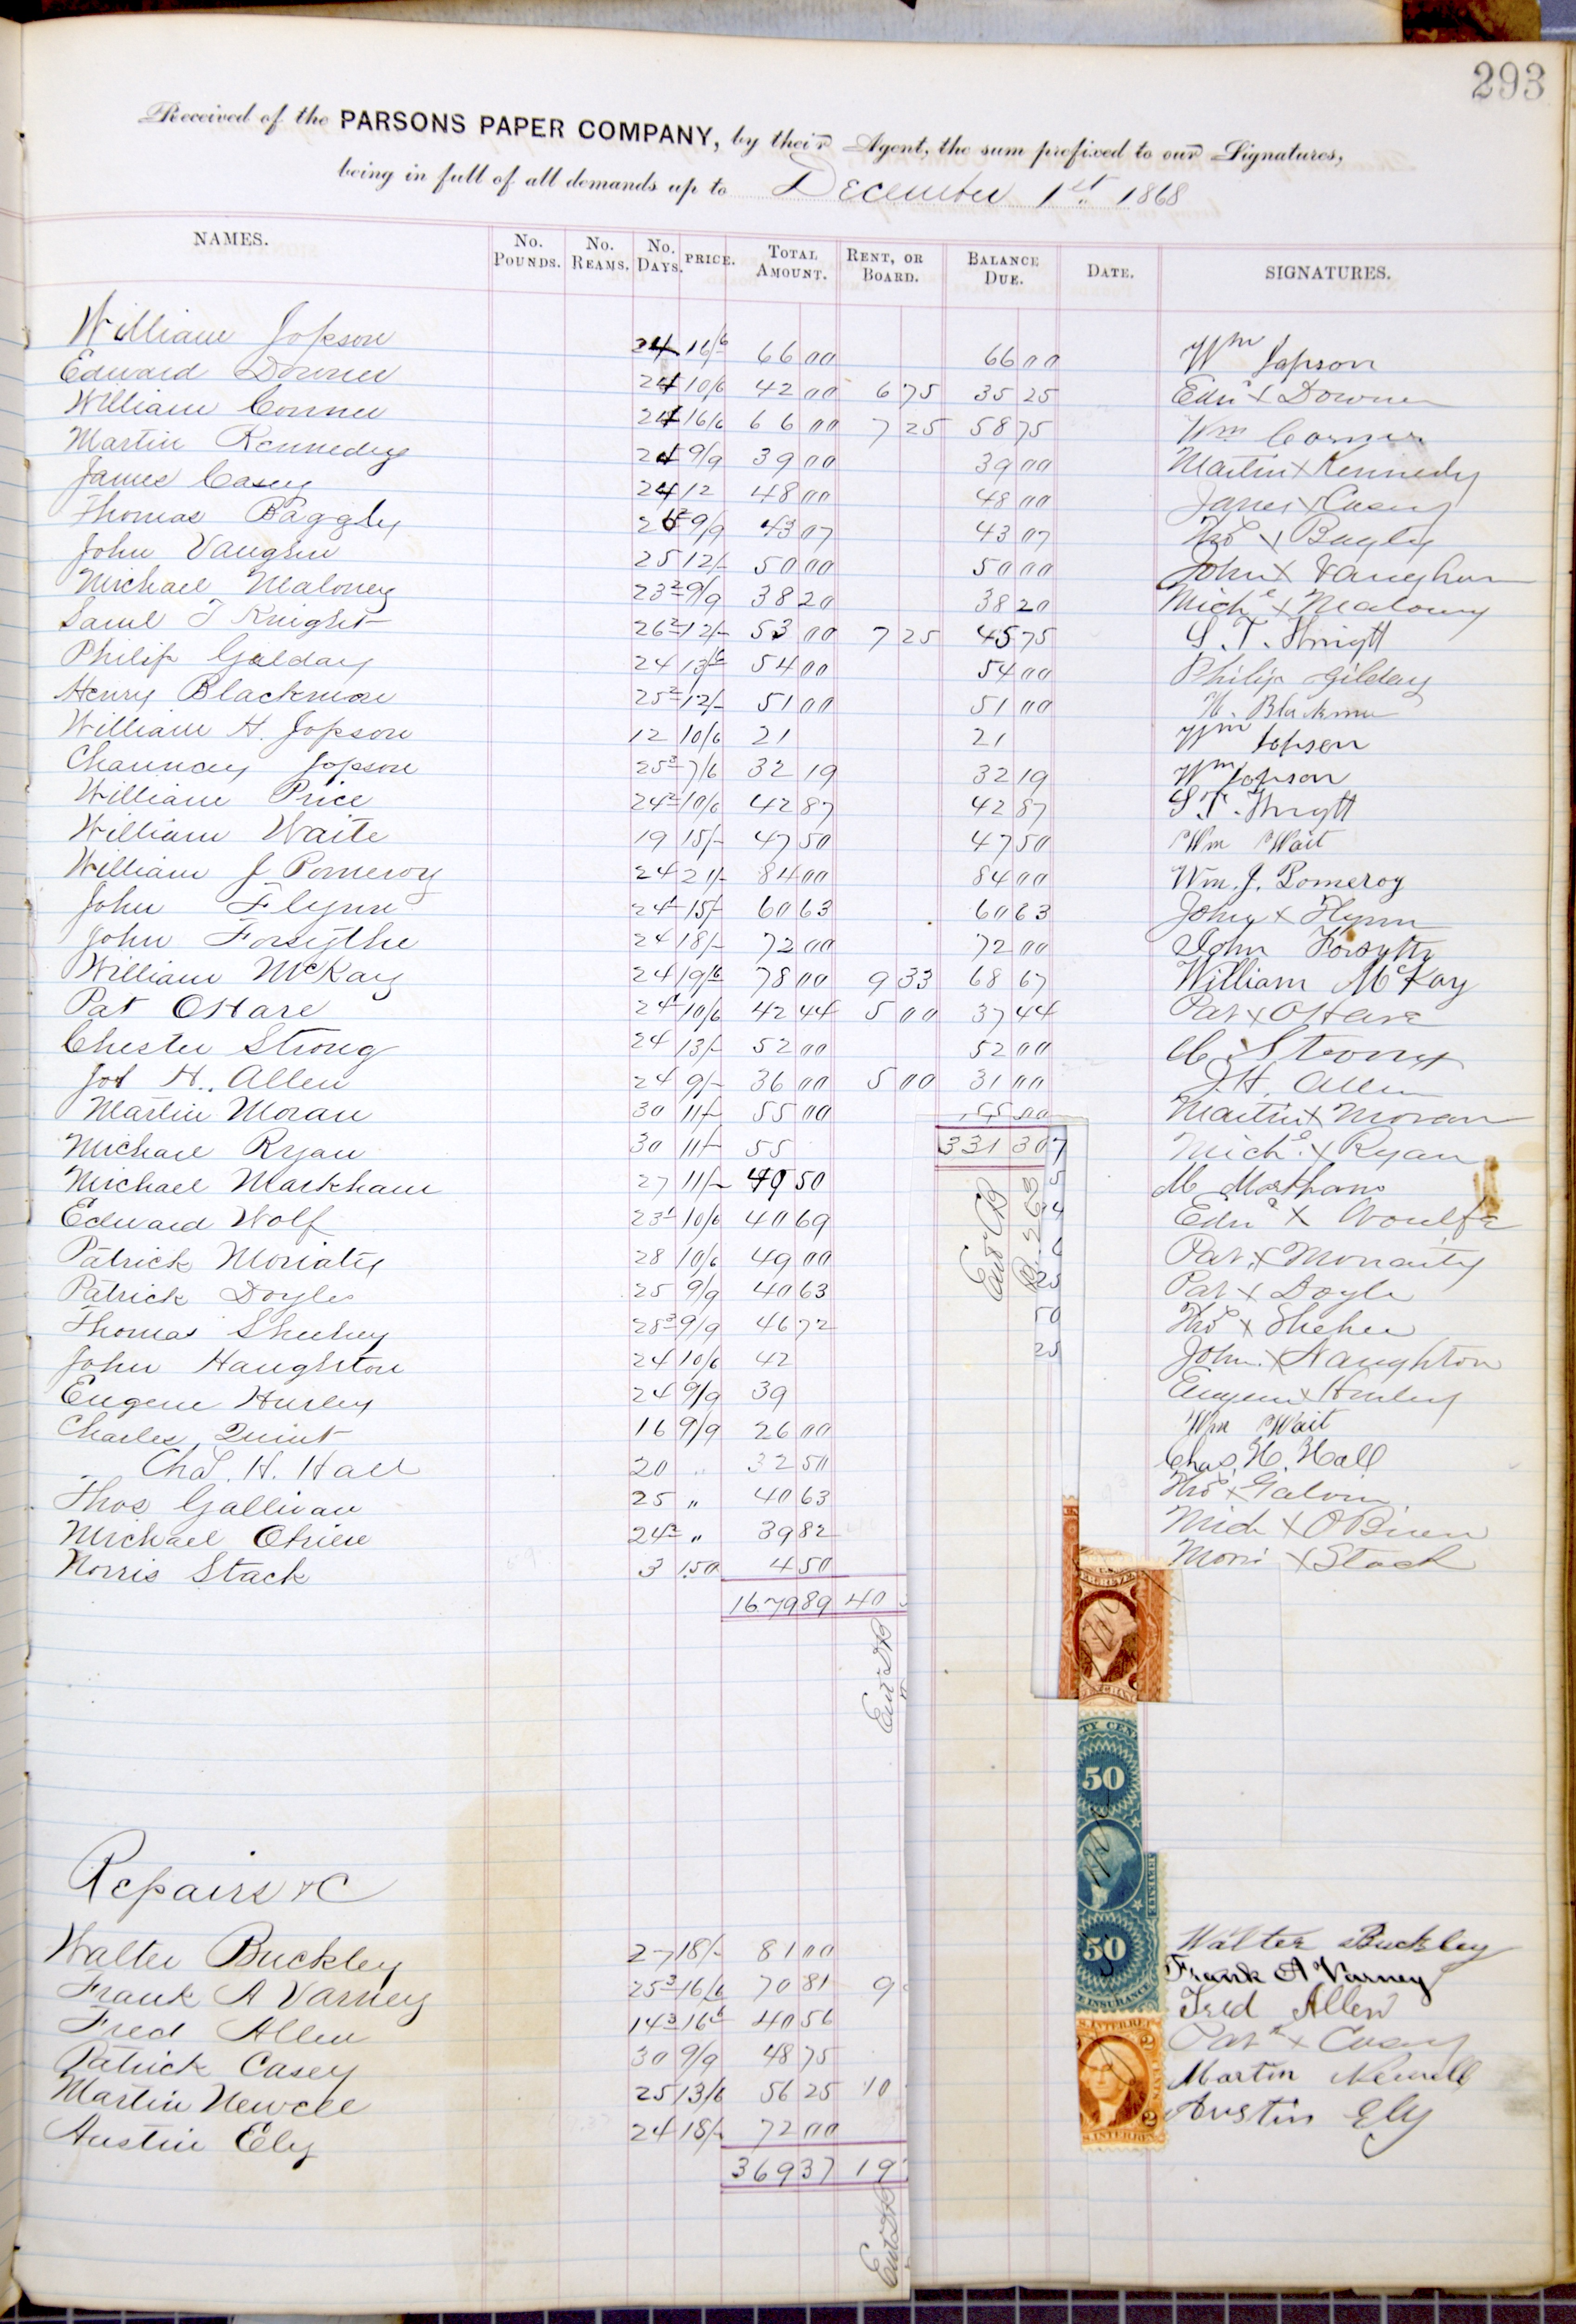 293
Received of the PARSONS PAPER COMPANY, by their Agent, the sum prefixed to our Signatures,
being in full of all demands up to December 1st 1868
NAMES. No. POUNDS. No. REAMS. No. DAYS. PRICE. TOTAL AMOUNT. RENT, OR BOARD. BALANCE DUE. DATE. SIGNATURES.
William Jopson 24 16/6 66 00 66 00 Wm Jopson
Edward Downer 24 10/6 42 00 6 75 35 25 Edw x Downer
William Conner 24 16/6 66 00 7 25 58 75 Wm Conner
Martin Kennedy 24 9/9 39 00 39 00 Martin x Kennedy
James Casey 24 12 48 00 48 00 James x Casey
Thomas Baggly 26 2 9/9 43 07 43 07 Thos x Bagly
John Vaughn 25 12/- 50 00 50 00 John x Vaughan
Michael Maloney 23 2 9/9 38 20 38 20 Michl x Malouny
Saml T Knight 26 2 12/- 53 00 7 25 45 75 S. T. Knight
Philip Galday 24 13/6 54 00 54 00 Philip Gilday
Henry Blackmore 25 2 12/- 51 00 51 00 H. Blackmer
William H. Jopson 12 10/6 21 21 Wm Jopson
Chauncey Jopson 25 3 7/6 32 19 32 19 Wm Jopson
William Price 24 2 10/6 42 87 42 87 S. T. Knight
William Waite 19 15/- 47 50 47 50 Wm Wait
William J Pomeroy 24 21/- 84 00 84 00 Wm. J. Pomeroy
John Flynn 24 1 15/- 60 63 60 63 John x Flynn
John Forsythe 24 18/- 72 00 72 00 John Forsyth
William McKay 24 19/6 78 00 9 33 68 67 William McKay
Pat OHare 24 1 10/6 42 44 5 00 37 44 Pat x OHare
Chester Strong 24 13/- 52 00 52 00 C. Strong
Jos H. Allen 24 9/- 36 00 5 00 31 00 J. H. Allen
Martin Moran 30 11/- 55 00 55 00 Martin x Moran
Michael Ryan 30 11/- 55 331 30 7 Michl x Ryan
Michael Markham 27 11/- 49 50 5 M Markham
Edward Wolf 23 1 10/6 40 69 4 Edwd x Woulfe
Patrick Moriaty 28 10/6 49 00 Pat. x Moriarity
Patrick Doyle 25 9/9 40 63 25 Pat x Doyle
Thomas Sheehey 28 3 9/9 46 72 50 Thos x Shehee
John Haughton 24 10/6 42 25 John x Naughton
Eugene Hurley 24 9/9 39 Eugene x Hurley
Charles Quint 16 9/9 26 00 Wm Wait
Chas. H. Hall 20 " 32 50 Chas. H. Hall
Thos Gallivan 25 " 40 63 Thos x Galvin
Michael Obrien 24 2 " 39 82 Mich x OBrien
Norris Stack 3 1.50 4 50 Morris x Stack
1679 89 40
Ent DB
Repairs &C
Walter Buckley 27 18/- 81 00 Walter Buckley
Frank A Varney 25 3 16/6 70 81 9 Frank A Varney
Fred Allen 14 3 16/6 40 56 Fred Allen
Patrick Casey 30 9/9 48 75 Pat x Casey
Martin Newell 25 13/6 56 25 10 Martin Newell
Austin Ely 24 18/- 72 00 Austin Ely
369 37 19
Ent DB
50
50
2 2